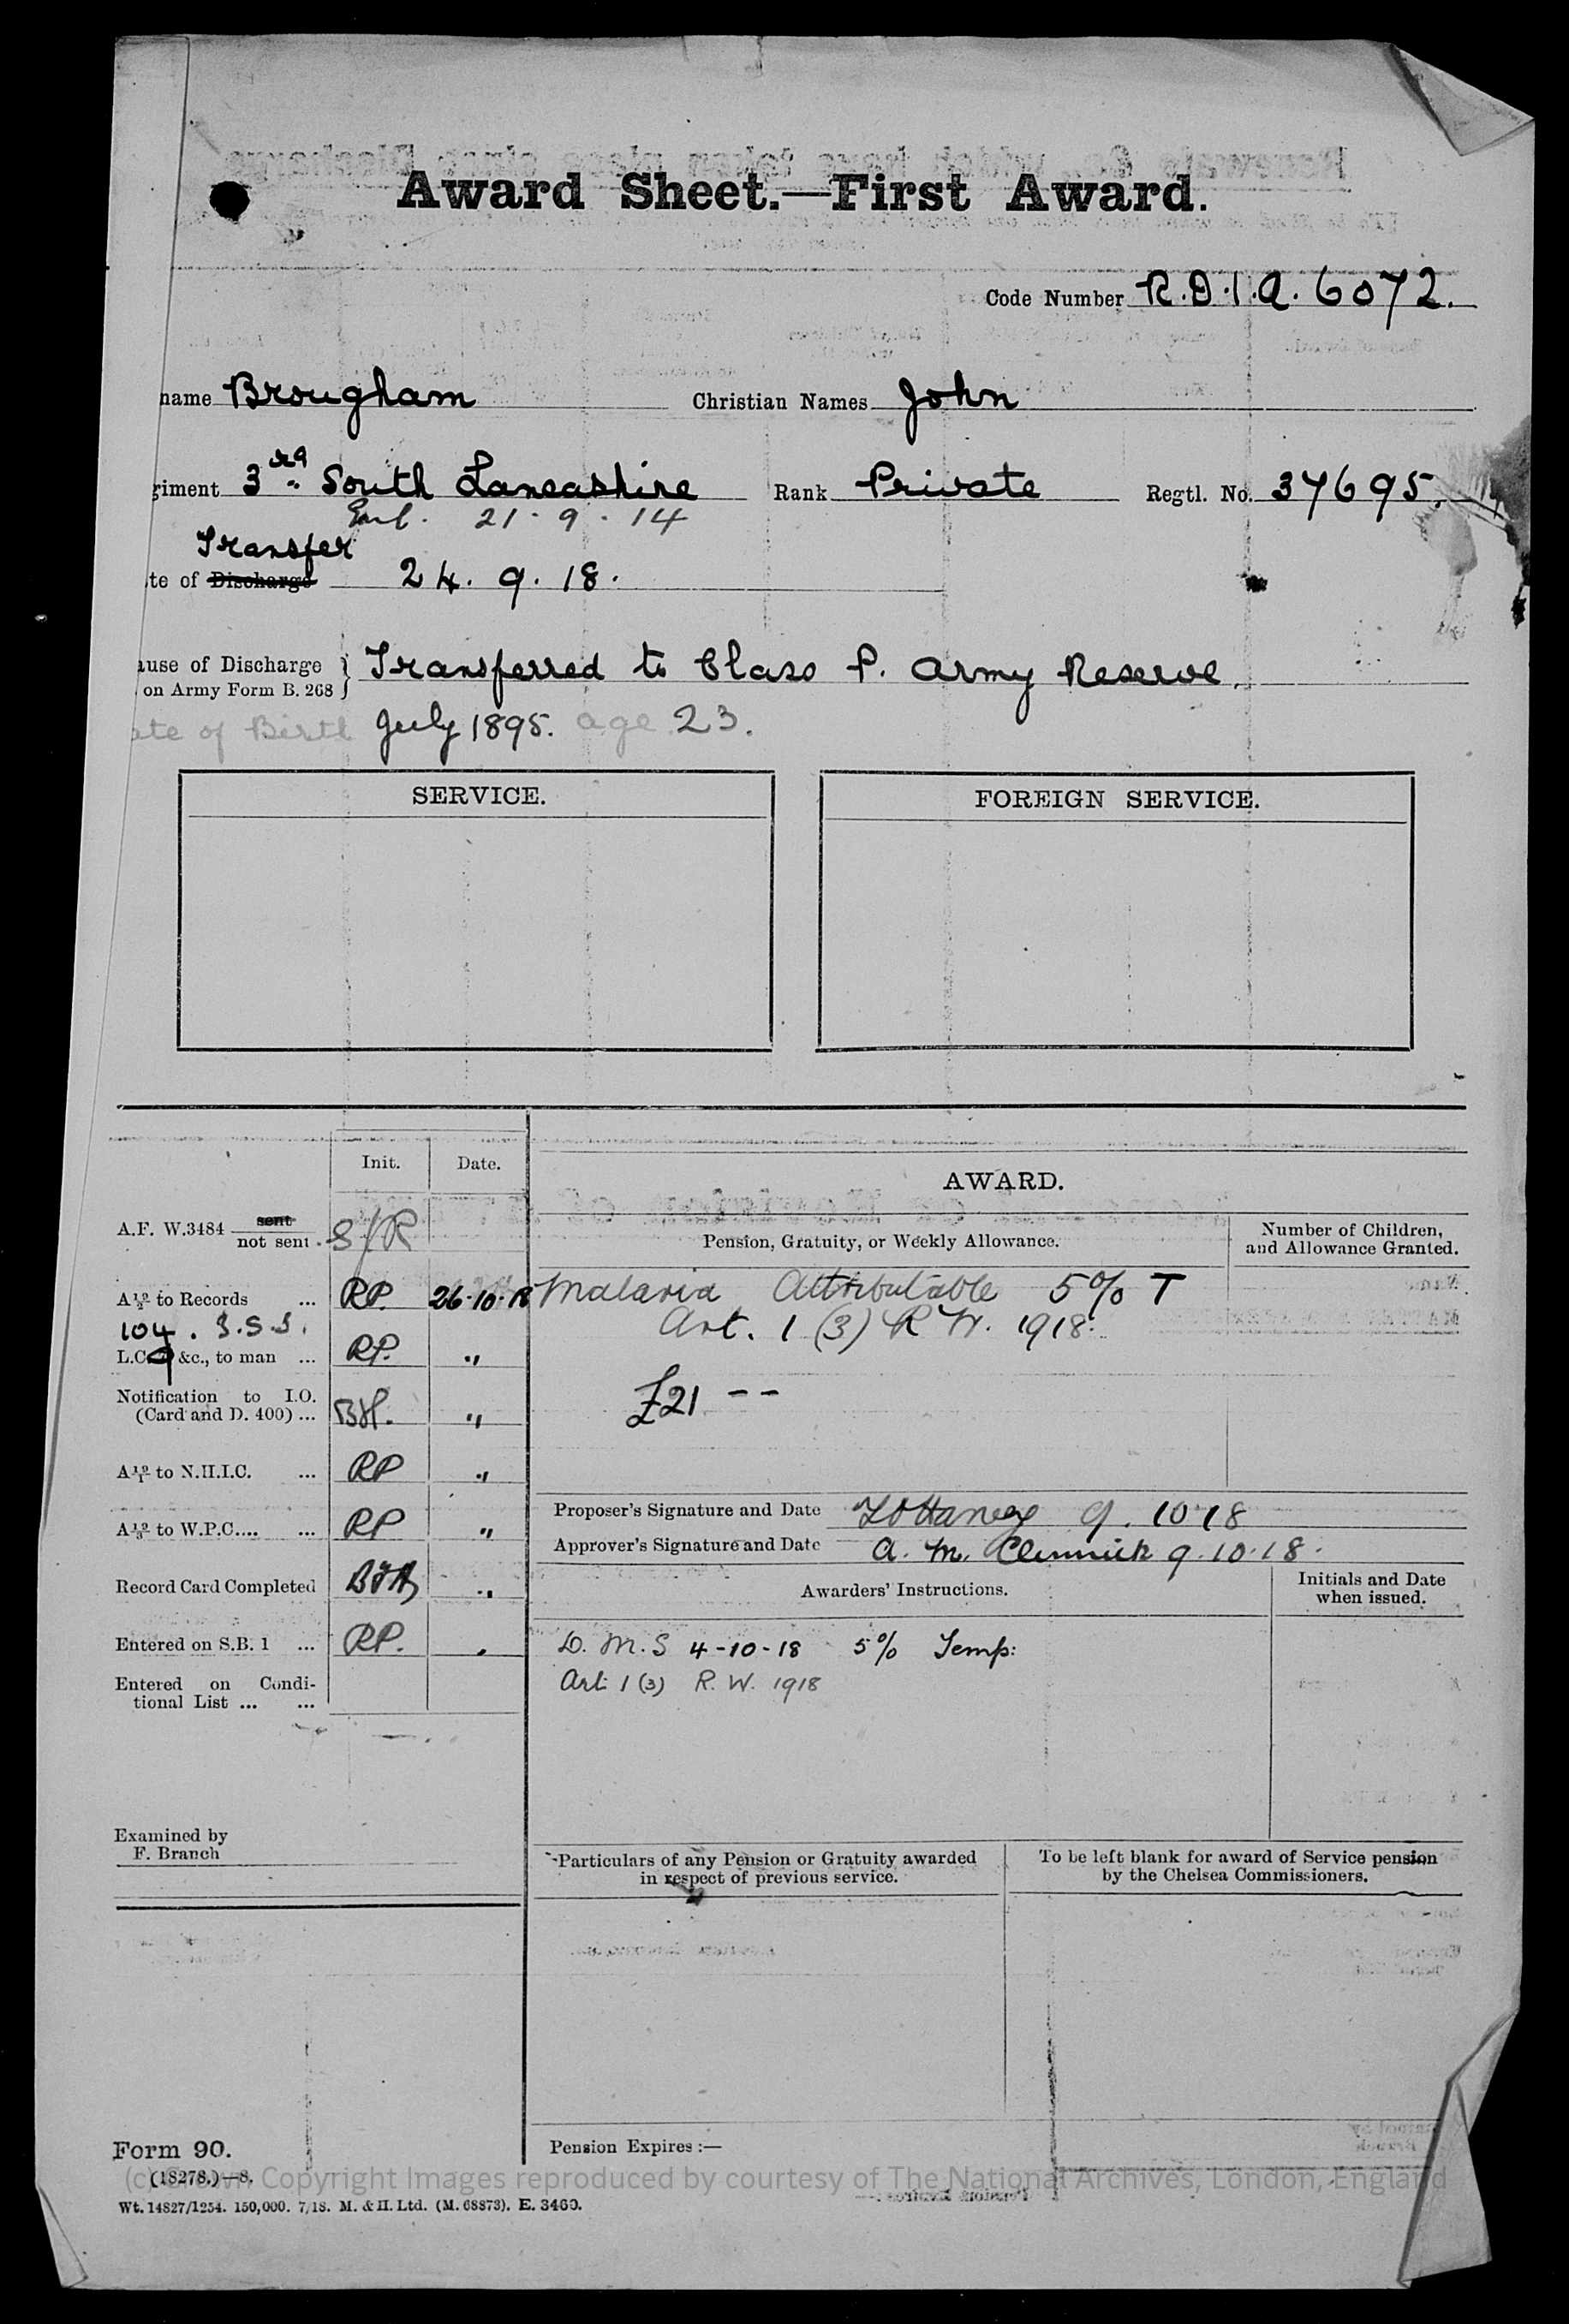 Award Sheet.—First Award.
Code Number R.D.1.A. 6072.
name Brougham Christian Names John
giment 3rd South Lancashire Rank Private Regtl. No. 37695.
Enl. 21.9.14
Transfer
te of Discharge 24.9.18.
ause of Discharge } Transferred to Class P. Army Reserve.
on Army Form B. 268
ate of Birth July 1895. age 23.
SERVICE. FOREIGN SERVICE.
Init. Date. AWARD.
A.F. W.3484 sent
not sent S/R
Pension, Gratuity, or Weekly Allowance. Number of Children, and Allowance Granted.
A to Records ... RP. 26.10.18 Malaria Attributable 5% T
104. Art. 1 (3) R W. 1918.
L.C. &c., to man ... RP. "
£21 - -
Notification to I.O.
(Card and D. 400) ... BH. "
A to N.H.I.C. ... RP "
Proposer's Signature and Date 9.10.18
A to W.P.C.... ... RP "
Approver's Signature and Date A. M. 9.10.18.
Record Card Completed "
Awarders' Instructions. Initials and Date when issued.
Entered on S.B. 1 ... RP.
D.M.S 4-10-18 5% Temp:
Art 1 (3) R.W. 1918
Entered on Condi-
tional List ... ...
Examined by
F. Branch
Particulars of any Pension or Gratuity awarded
in respect of previous service.
To be left blank for award of Service pension
by the Chelsea Commissioners.
Form 90. Pension Expires :—
(18278.)—8.
(c) Crown Copyright Images reproduced by courtesy of The National Archives, London, England
Wt. 14827/1254. 150,000. 7/18. M. & H. Ltd. (M. 68873). E. 3460.